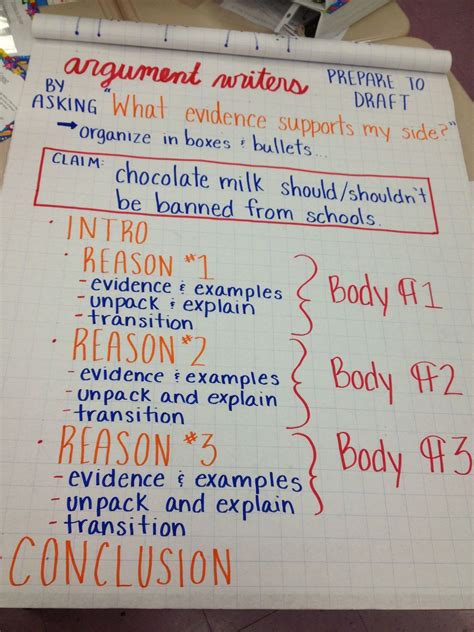 argument writers PREPARE TO DRAFT
BY ASKING "What evidence supports my side?"
→ organize in boxes & bullets...
CLAIM: chocolate milk should/shouldn't
be banned from schools.
· INTRO
· REASON #1
- evidence & examples
- unpack & explain
- transition
Body ¶1
· REASON #2
- evidence & examples
- unpack and explain
- transition
Body ¶2
· REASON #3
- evidence & examples
- unpack and explain
- transition
Body ¶3
· CONCLUSION